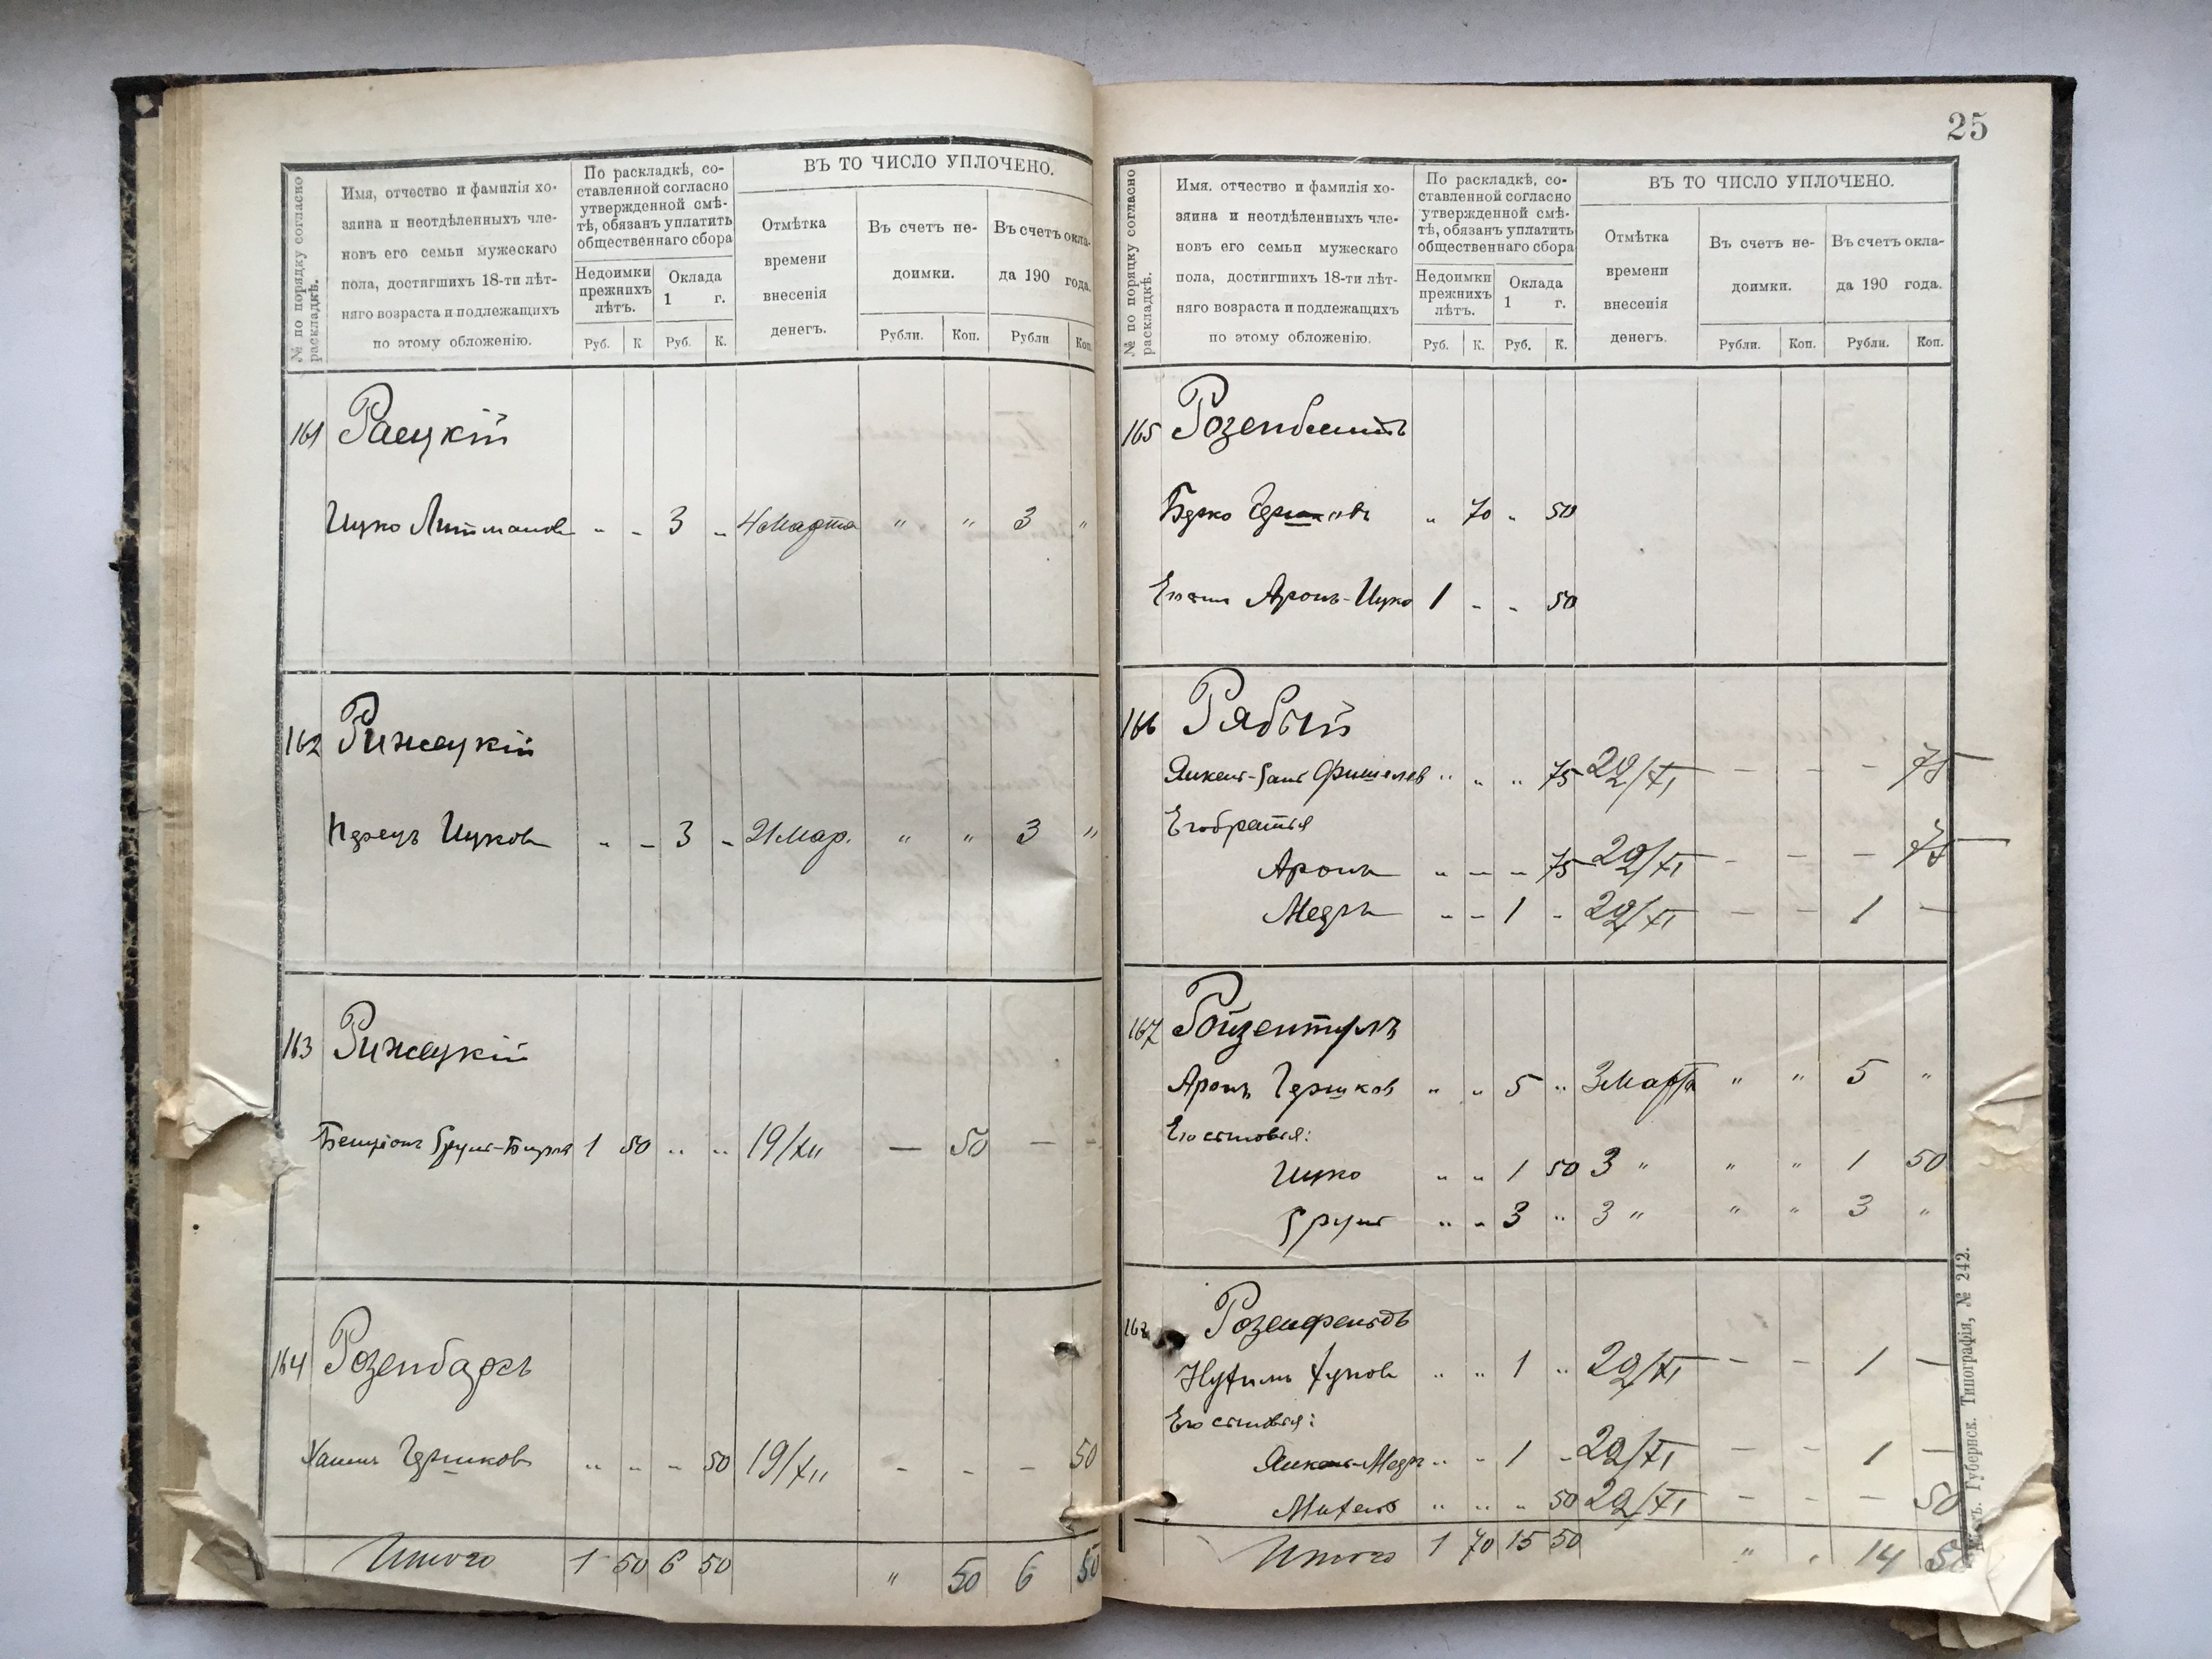 № по порядку согласно раскладкѣ.
Имя, отчество и фамилія хо-
зяина и неотдѣленныхъ чле-
новъ его семьи мужескаго
пола, достигшихъ 18-ти лѣт-
няго возраста и подлежащихъ
по этому обложенію.
По раскладкѣ, со-
ставленной согласно
утвержденной смѣ-
тѣ, обязанъ уплатить
общественнаго сбора
Недоимки прежнихъ лѣтъ.
Оклада 1 г.
Руб. К Руб. К.
ВЪ ТО ЧИСЛО УПЛОЧЕНО.
Отмѣтка
времени
внесенія
денегъ.
Въ счетъ не-
доимки.
Рубли. Коп.
Въ счетъ окла-
да 190 года.
Рубли Коп.
161 Раецкій
Ицко Литманов „ „ 3 „ 4 Марта „ „ 3 „
162 Рижецкій
Ицков „ „ 3 „ 21 Мар. „ „ 3 „
163 Рижецкій
Бенціон 1 50 „ „ 19/XII — 50 — -
164
Хаим Гершков „ „ - 50 19/XII - - - 50
Итого 1 50 6 50 „ 50 6 50
25
№ по порядку согласно раскладкѣ.
Имя, отчество и фамилія хо-
зяина и неотдѣленныхъ чле-
новъ его семьи мужескаго
пола, достигшихъ 18-ти лѣт-
няго возраста и подлежащихъ
по этому обложенію.
По раскладкѣ, со-
ставленной согласно
утвержденной смѣ-
тѣ, обязанъ уплатить
общественнаго сбора
Недоимки прежнихъ лѣтъ.
Оклада 1 г.
Руб. К. Руб. К.
ВЪ ТО ЧИСЛО УПЛОЧЕНО.
Отмѣтка
времени
внесенія
денегъ.
Въ счетъ не-
доимки.
Рубли. Коп.
Въ счетъ окла-
да 190 года.
Рубли. Коп.
165
Берко „ 70 „ 50
Аронъ-Ицко 1 - - 50
166 Рябый
Фишелев „ „ „ 75 22/XI — — — 75
Его братья
Аронъ „ — — 75 22/XI — — — 75
Меер „ - 1 - 22/XI — — 1 —
167 Ройзентулъ
Аронъ Гершков „ „ 5 „ 3 Марта „ „ 5 „
Его сыновья:
Ицко „ „ 1 50 3 „ „ „ 1 50
Срул „ „ 3 „ 3 „ „ „ 3 „
168 Розенфельдъ
„ „ 1 „ 22/XI — — 1 —
Его сыновья:
Янкель-Меер „ - 1 - 22/XI — — 1 —
„ „ „ 50 22/XI — — — 50
Итого 1 70 15 50 „ „ 14 50
Губернск. Типографія, № 242.